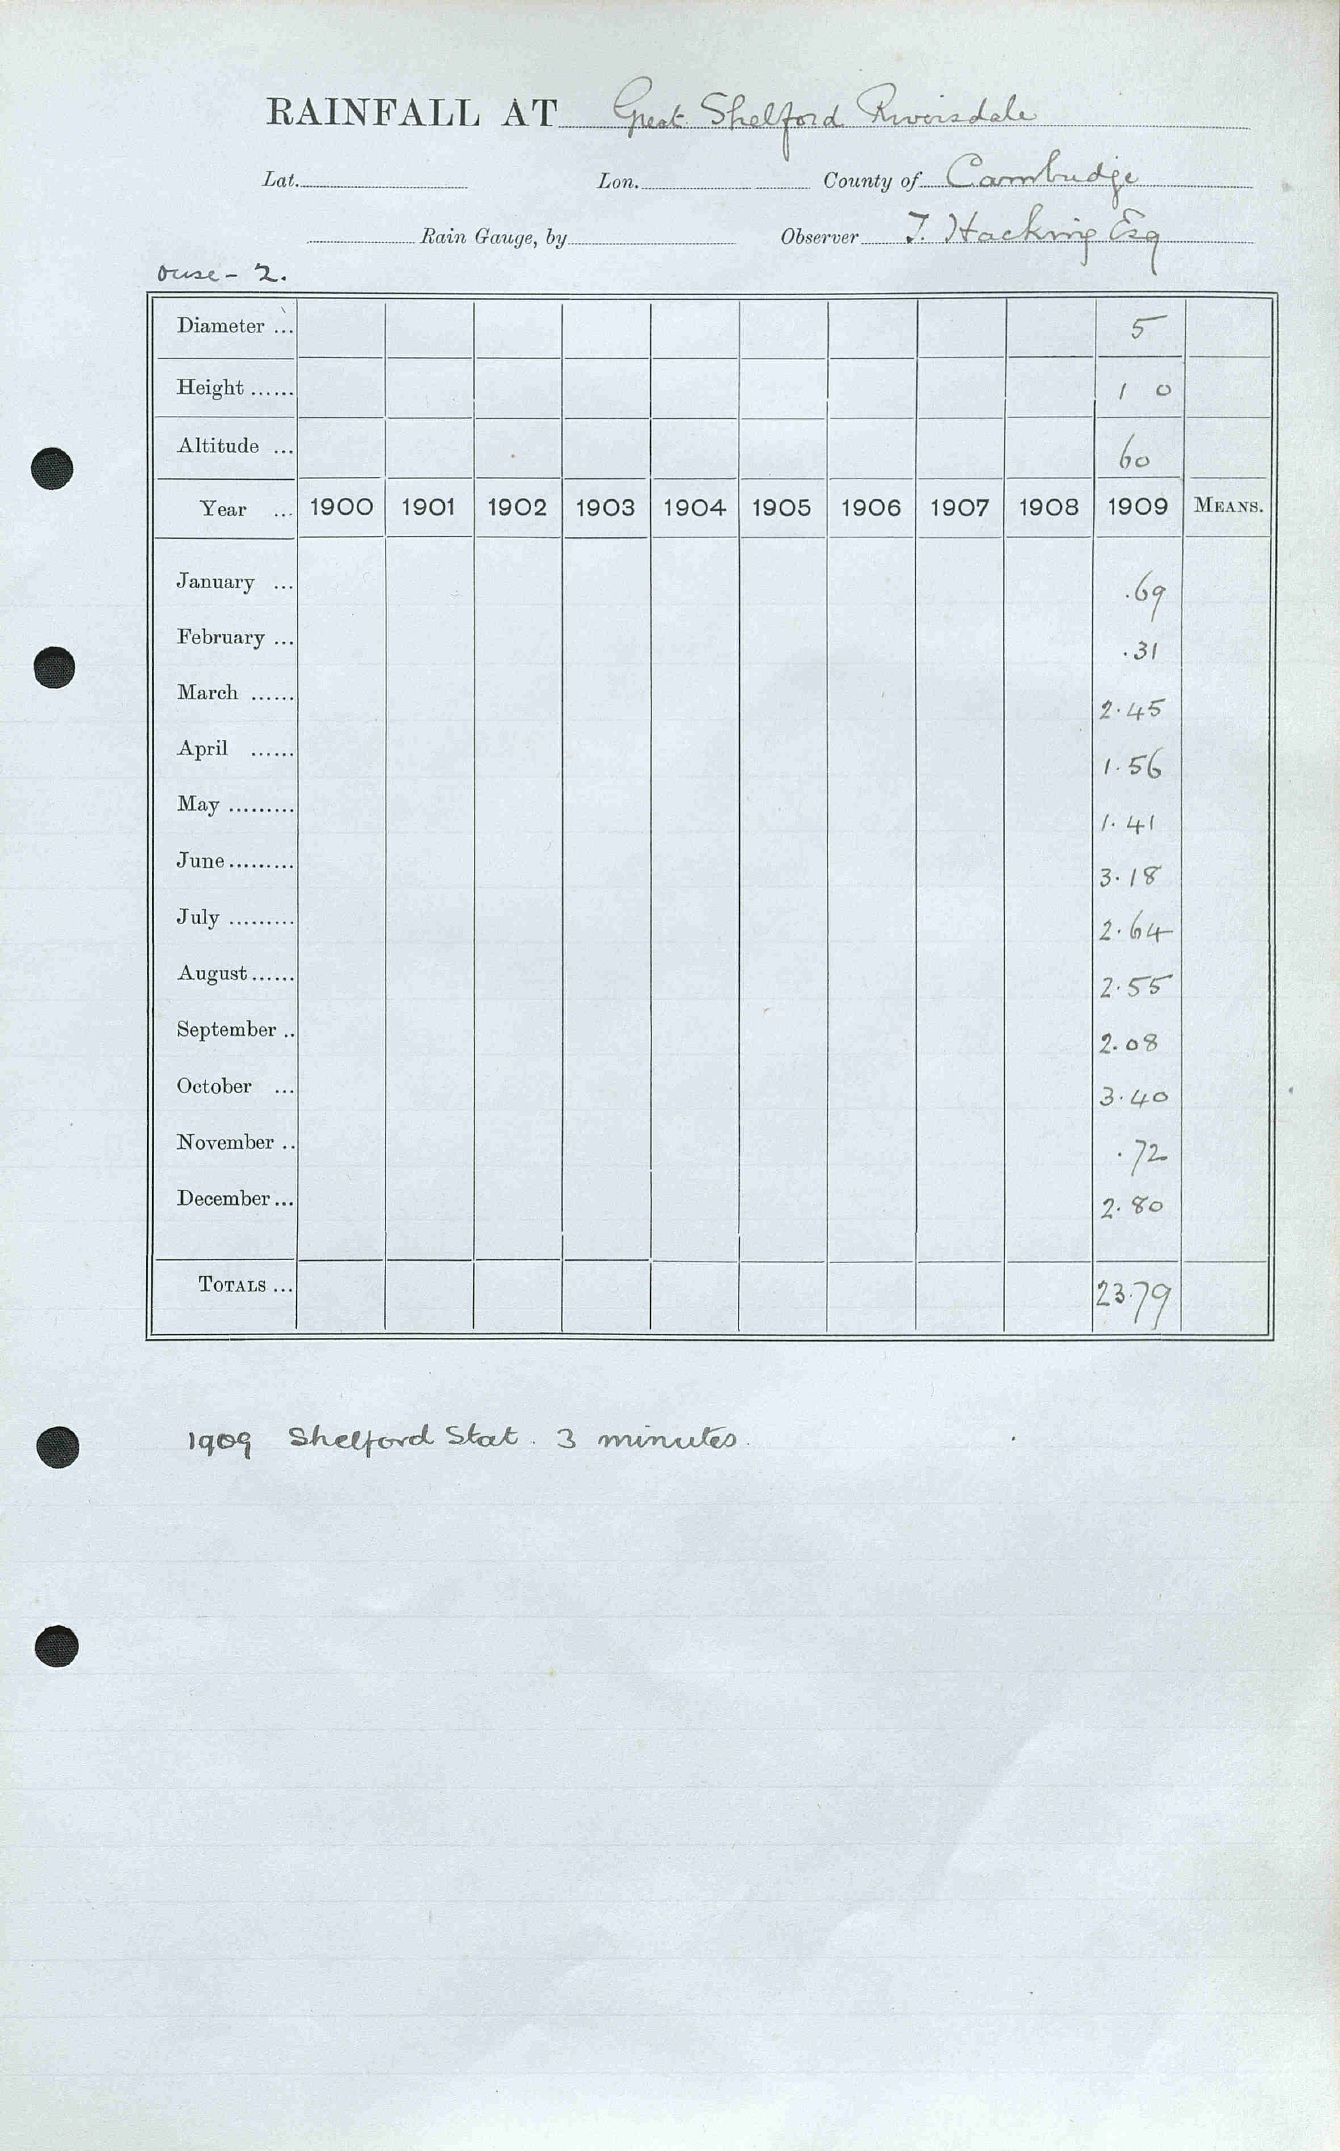 RAINFALL AT Great Shelford Riversdale
Lat. Lon. County of Cambridge
Rain Gauge, by Observer T. Hacking Esq
Ouse - 2.
Diameter ... 5
Height ...... 1 0
Altitude ... 60
Year ... 1900 1901 1902 1903 1904 1905 1906 1907 1908 1909 MEANS.
January ... .69
February ... .31
March ...... 2.45
April ...... 1.56
May ......... 1.41
June ......... 3.18
July ......... 2.64
August ...... 2.55
September .. 2.08
October ... 3.40
November .. .72
December ... 2.80
TOTALS ... 23.79
1909 Shelford Stat. 3 minutes.